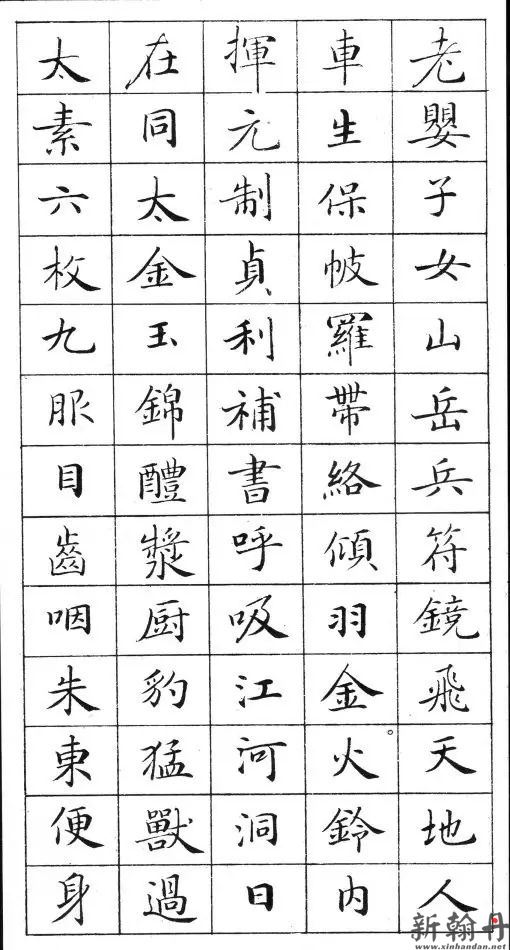 老嬰子女山岳兵符鏡飛天地人
車生保帔羅帶絡傾羽金火鈴内
揮元制貞利補書呼吸江河洞日
在同太金玉錦醴漿厨豹猛獸過
太素六枚九服目齒咽朱東便身
新翰丹
www.xinhandan.net